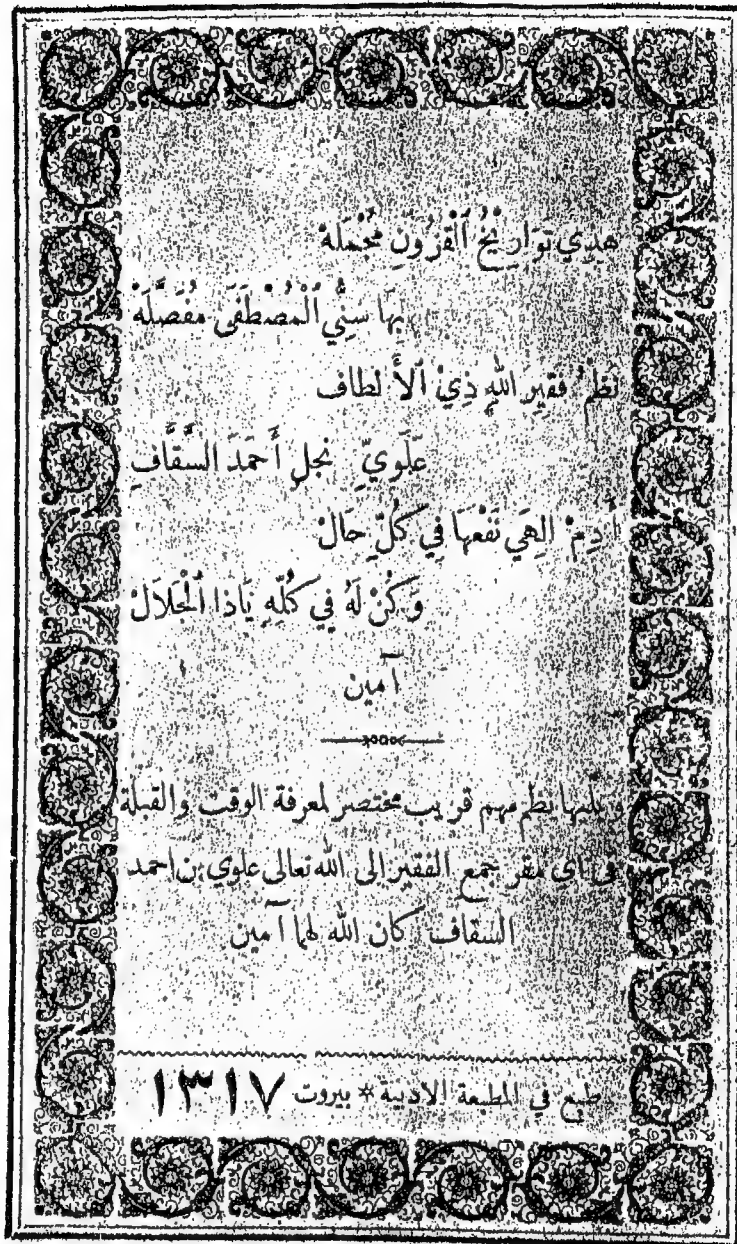 هٰذِي تَوَارِيْخُ ٱلْقُرُونِ مُجْمَلَهْ
بِهَا سَنِيُّ ٱلْمُصْطَفَى مُفَصَّلَهْ
نَظْمُ فَقِيرِ اللهِ ذِيْ ٱلأَلطاف
عَلَوِيِّ نجلِ أَحمَدَ السَّقَّافِ
أَدِمْ الهِي نَفْعَهَا فِي كُلِّ حَالْ
وَكُنْ لَهُ فِي كُلِّهِ يَاذا ٱلْجَلَالْ
آمين
ويليها نظم مهم قريب مختصر لمعرفة الوقت والقبلة
في اي مقر جمع الفقير الى الله تعالى علوي بن احمد
السقاف كان الله لهما آمين
طبع في المطبعة الادبية * بيروت ١٣١٧